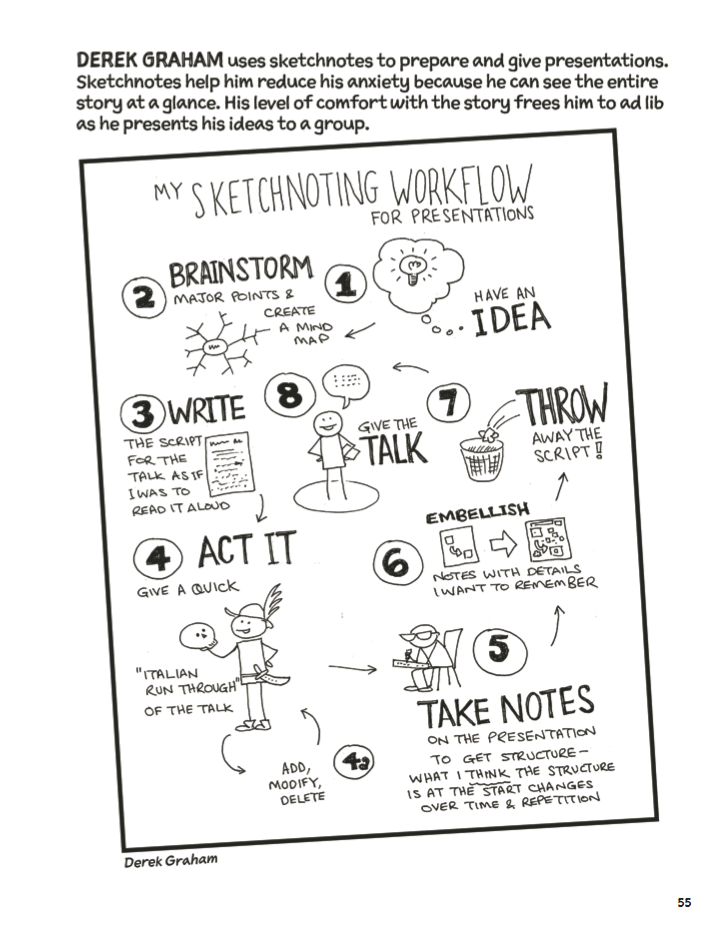 DEREK GRAHAM uses sketchnotes to prepare and give presentations.
Sketchnotes help him reduce his anxiety because he can see the entire
story at a glance. His level of comfort with the story frees him to ad lib
as he presents his ideas to a group.
MY SKETCHNOTING WORKFLOW
FOR PRESENTATIONS
1
HAVE AN
IDEA
2
BRAINSTORM
MAJOR POINTS &
CREATE
A MIND
MAP
3 WRITE
THE SCRIPT
FOR THE
TALK AS IF
I WAS TO
READ IT ALOUD
4 ACT IT
GIVE A QUICK
"ITALIAN
RUN THROUGH"
OF THE TALK
4a
ADD,
MODIFY,
DELETE
5
TAKE NOTES
ON THE PRESENTATION
TO GET STRUCTURE–
WHAT I THINK THE STRUCTURE
IS AT THE START CHANGES
OVER TIME & REPETITION
6
EMBELLISH
NOTES WITH DETAILS
I WANT TO REMEMBER
7
THROW
AWAY THE
SCRIPT!
8
GIVE THE
TALK
Derek Graham
55